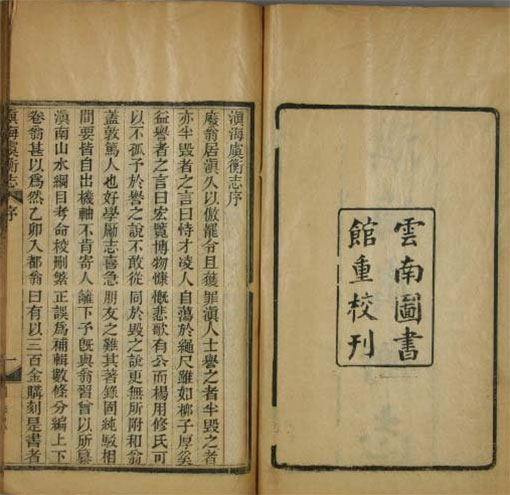 雲南圖書
館重校刊
滇海虞衡志序
廢翁居滇久以傲罷令且獲罪滇人士譽之者半毀之者
亦半毀者之言曰恃才凌人自蕩於繩尺雖如柳子厚奚
益譽者之言曰宏覽博物慷慨悲歌有公而楊用修氏可
以不孤予於譽之說不敢從同於毀之說更無所附和翁
蓋敦篤人也好學勵志喜急朋友之難其著錄固純駁相
間要皆自出機軸不肯寄人籬下予旣與翁習曾以所纂
滇南山水綱目考命校刪繁正誤爲補輯數條分編上下
卷翁甚以爲然乙卯入都翁曰有以三百金購刻是書者
滇海虞衡志 序 一